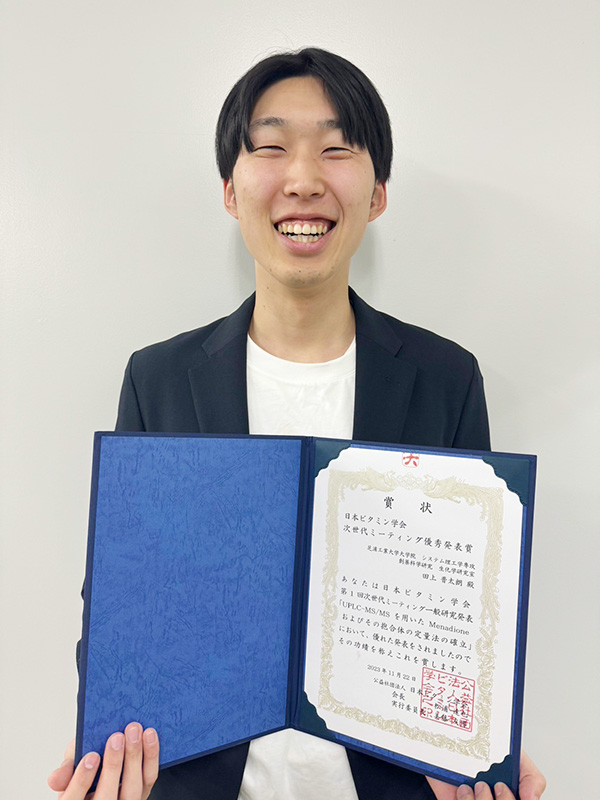 賞 状
日本ビタミン学会
次世代ミーティング優秀発表賞
芝浦工業大学大学院 システム理工学専攻
創薬科学研究 生化学研究室
田上 普太朗 殿
あなたは日本ビタミン学会
第1回次世代ミーティング一般研究発表
「UPLC-MS/MS を用いた Menadione
およびその抱合体の定量法の確立」
において、優れた発表をされましたので
その功績を称えこれを賞します。
2023年11月22日
公益社団法人 日本
会長
実行委員長